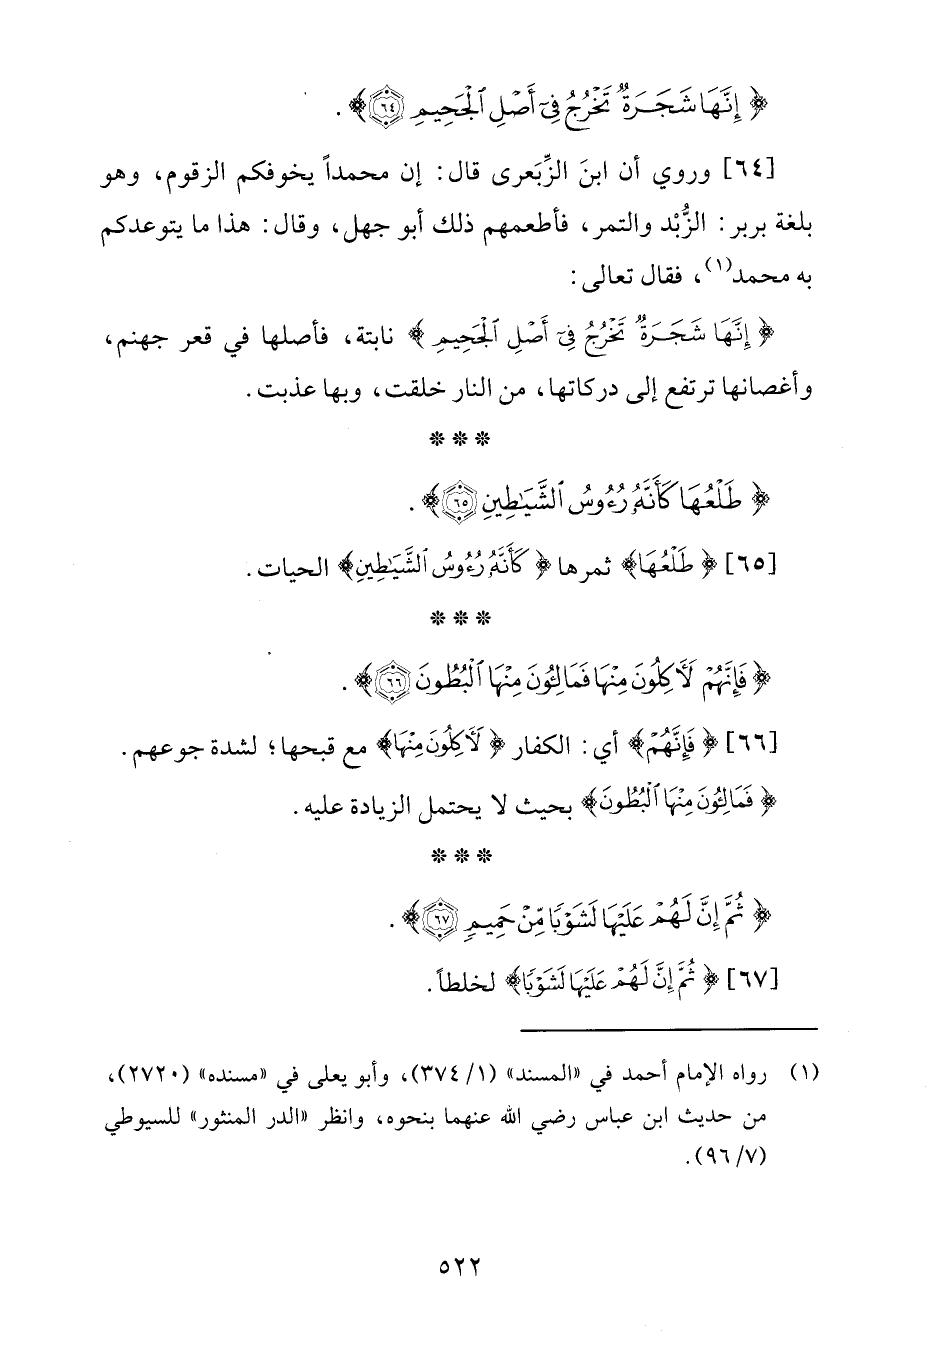 ﴿ إِنَّهَا شَجَرَةٌ تَخْرُجُ فِيٓ أَصْلِ ٱلْجَحِيمِ ﴿٦٤﴾ ﴾ .
[٦٤] وروي أن ابنَ الزِّبَعرى قال: إن محمداً يخوفكم الزقوم، وهو
بلغة بربر: الزُّبْد والتمر، فأطعمهم ذلك أبو جهل، وقال: هذا ما يتوعدكم
به محمد(١)، فقال تعالى:
﴿ إِنَّهَا شَجَرَةٌ تَخْرُجُ فِيٓ أَصْلِ ٱلْجَحِيمِ ﴾ نابتة، فأصلها في قعر جهنم،
وأغصانها ترتفع إلى دركاتها، من النار خلقت، وبها عذبت.
* * *
﴿ طَلْعُهَا كَأَنَّهُۥ رُءُوسُ ٱلشَّيَٰطِينِ ﴿٦٥﴾ ﴾ .
[٦٥] ﴿ طَلْعُهَا﴾ ثمرها ﴿ كَأَنَّهُۥ رُءُوسُ ٱلشَّيَٰطِينِ﴾ الحيات.
* * *
﴿ فَإِنَّهُمْ لَأَٓكِلُونَ مِنْهَا فَمَالِـُٔونَ مِنْهَا ٱلْبُطُونَ ﴿٦٦﴾ ﴾ .
[٦٦] ﴿ فَإِنَّهُمْ﴾ أي: الكفار ﴿ لَأَٓكِلُونَ مِنْهَا﴾ مع قبحها؛ لشدة جوعهم.
﴿ فَمَالِـُٔونَ مِنْهَا ٱلْبُطُونَ﴾ بحيث لا يحتمل الزيادة عليه.
* * *
﴿ ثُمَّ إِنَّ لَهُمْ عَلَيْهَا لَشَوْبًا مِّنْ حَمِيمٍ ﴿٦٧﴾ ﴾ .
[٦٧] ﴿ ثُمَّ إِنَّ لَهُمْ عَلَيْهَا لَشَوْبًا﴾ لخلطاً.
(١) رواه الإمام أحمد في «المسند» (١/ ٣٧٤)، وأبو يعلى في «مسنده» (٢٧٢٠)،
من حديث ابن عباس رضي الله عنهما بنحوه، وانظر «الدر المنثور» للسيوطي
(٧/ ٩٦).
٥٢٢